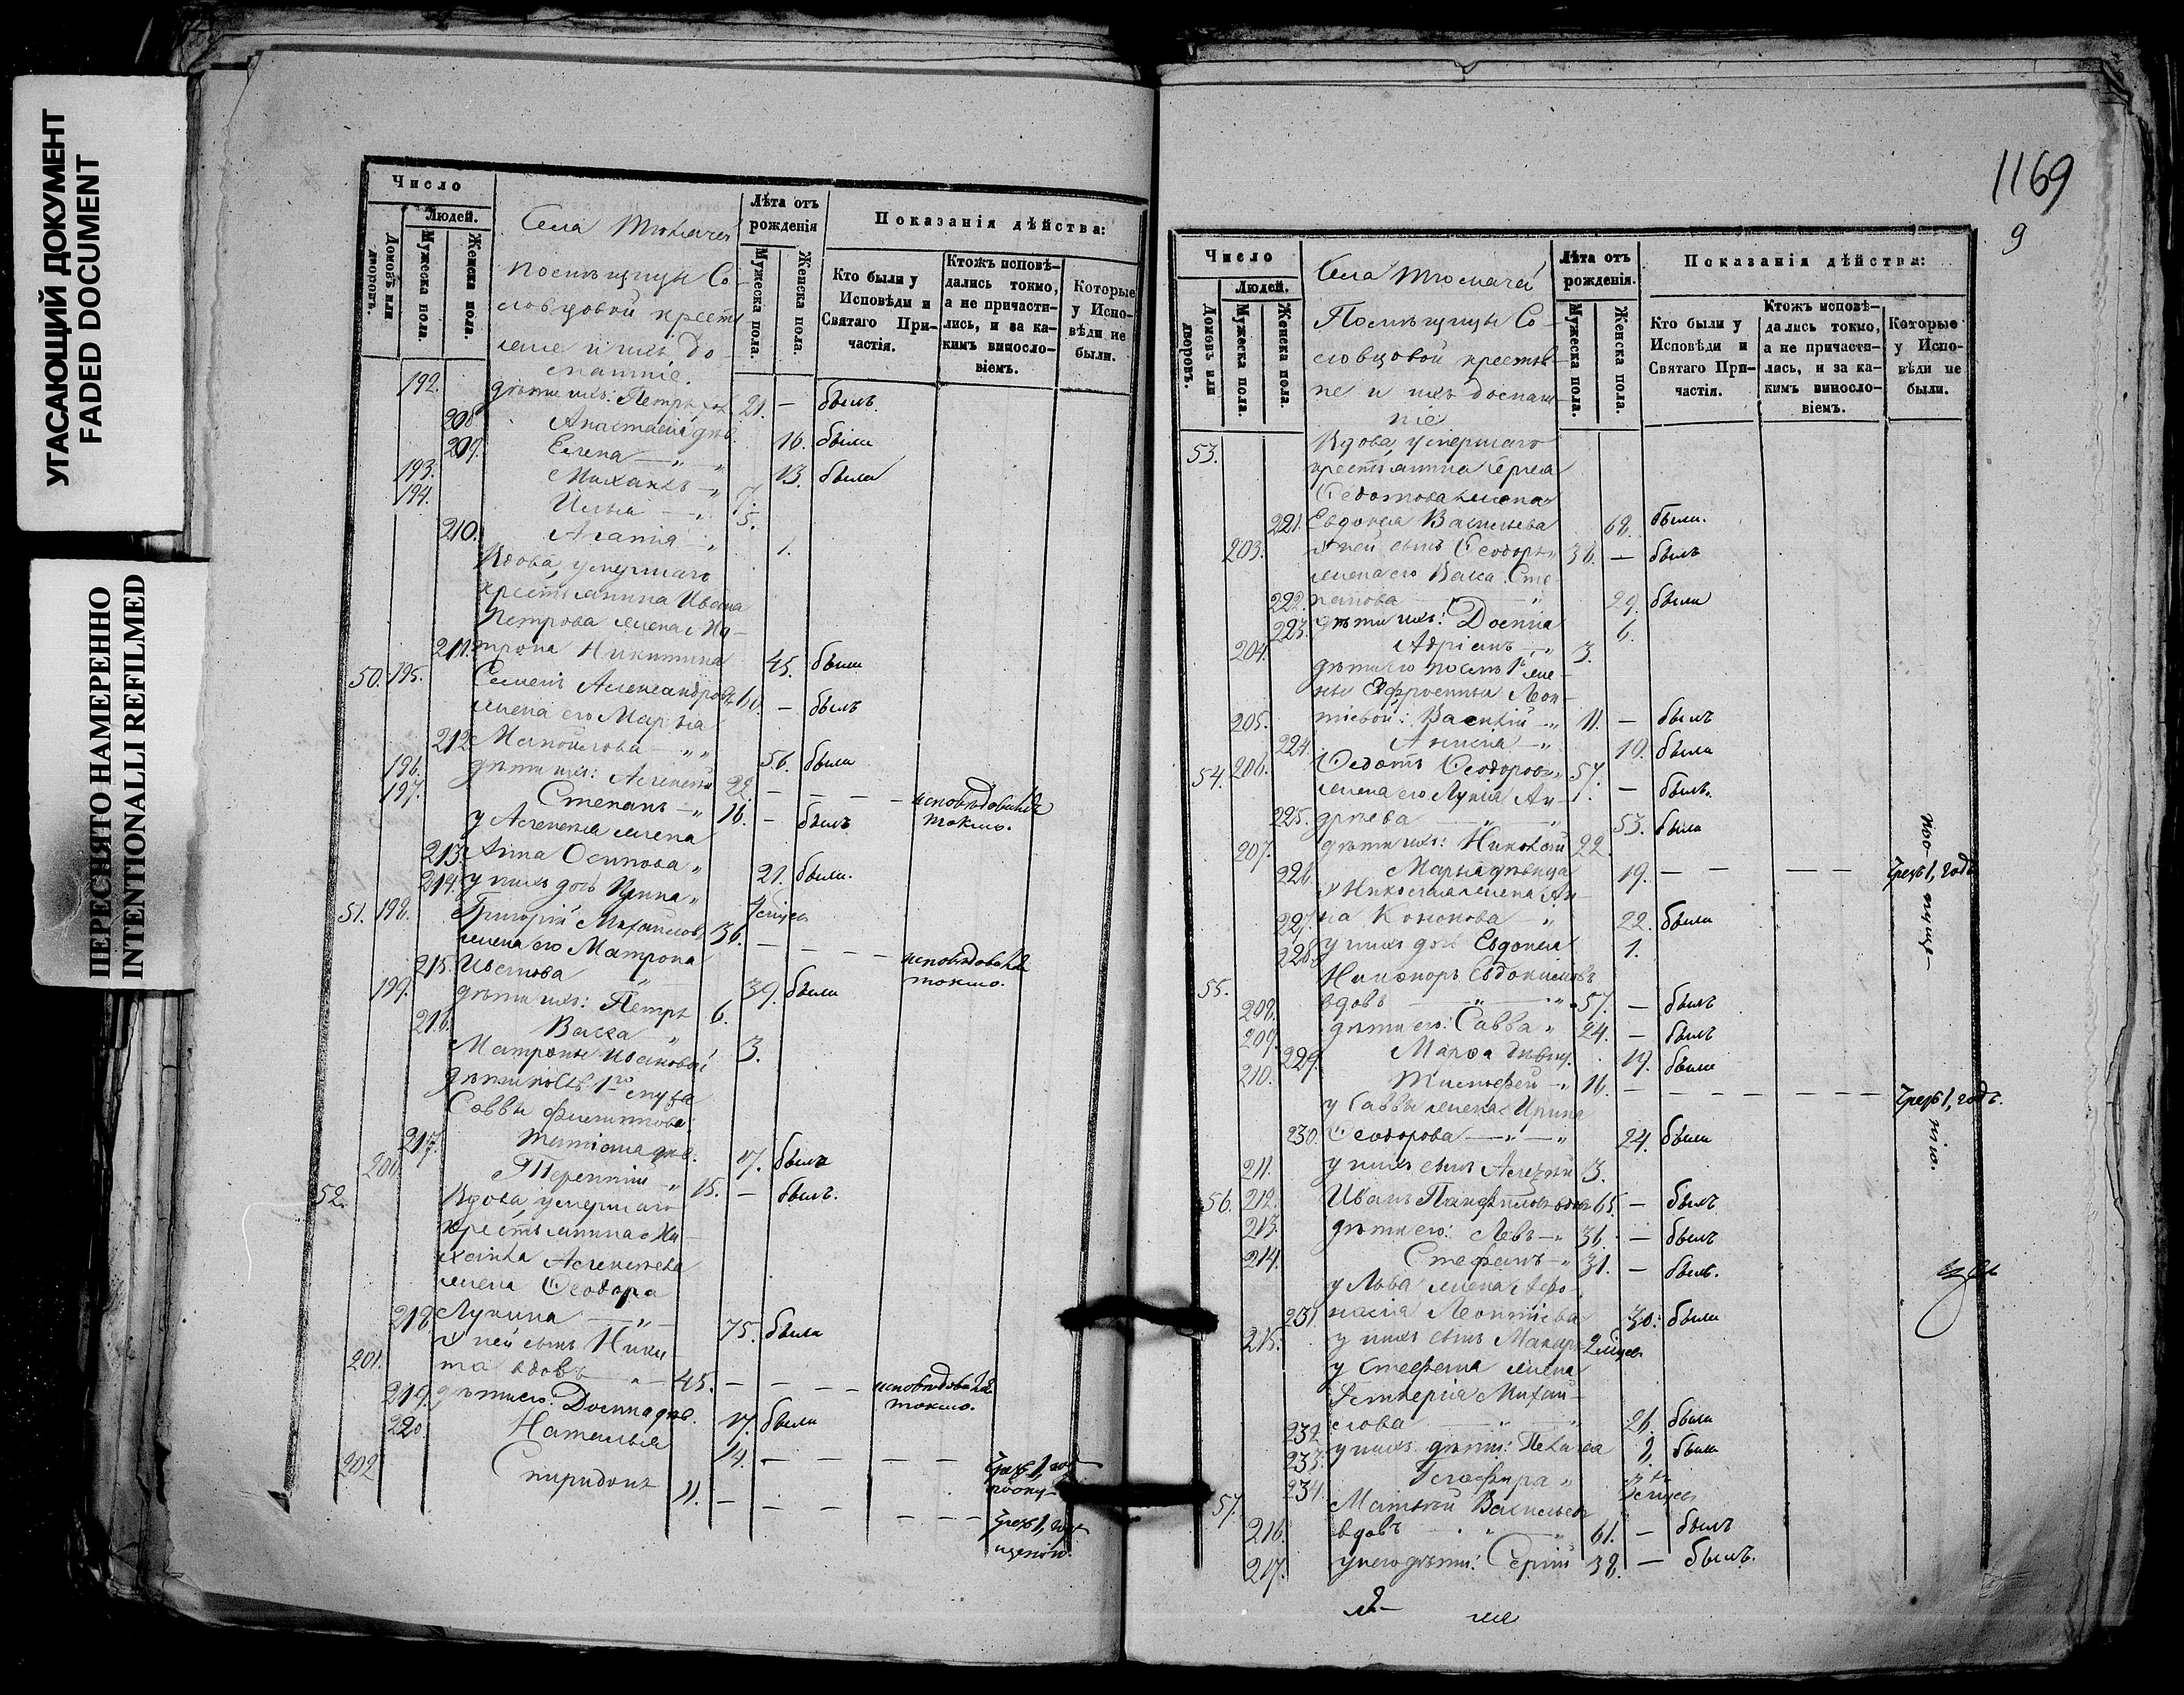 УГАСАЮЩИЙ ДОКУМЕНТ
FADED DOCUMENT
ПЕРЕСНЯТО НАМЕРЕННО
INTENTIONALLI REFILMED
Число
Людей.
Домовъ или дворовъ.
Мужеска пола.
Женска пола.
Села
помѣщицы Со-
ловцовой кресть
яне и ихъ до-
машніе.
Лѣта отъ
рожденія
Мужеска пола.
Женска пола.
Показанія дѣйства:
Кто были у
Исповѣди и
Святаго При-
частія.
Ктожъ исповѣ-
дались токмо,
а не причасти-
лись, и за ка-
кимъ винословіемъ.
Которые
у Испо-
вѣди не
были.
192. дѣти ихъ: Петръ 21. — былъ.
208 Анастасія дѣв. 16. была
209. Елена — „ 13. была
193. Михаилъ „ 7.
194. Илья — „ 5.
210. Агапія „ 1.
Вдова, умершаго
крестьянина Ивана
Петрова жена Ма-
211. трона Никитина 45. была
50. 195. Семенъ Александровъ 60. — былъ
жена его Марѳа
212. Мануилова — „ „ 56. была
196. дѣти ихъ: Алексѣй 22. — — — исповѣдовался
токмо.
197. Степанъ — „ 16. — былъ
у Алексѣя жена
213. Анна Осипова „ 21. была.
214. у нихъ дочь Ирина „
51. 198. Григорій Михайловъ 36. — — — исповѣдовался
токмо.
жена его Матрона
215. Иванова „ 39. была
199. дѣти ихъ: Петръ 6.
216. Васса „ 3.
Матроны Ивановой
дѣти послѣ 1го мужа
Саввы Филиппова:
217. Татіана дѣв. 17. была
200. Терентій „ 15. — былъ.
52. Вдова, умершаго
крестьянина Ми-
хаила Алексѣева
жена Ѳеодора
218. Лукина — „ 75. была
201. у ней сынъ Ники-
та вдовъ „ 45. — — — исповѣдовался
токмо.
219. дѣти его: Досина дѣв. 17. была
220. Наталья 14. — — — чрезъ 1, годъ
202 Спиридонъ 11. — — — чрезъ 1, годъ
1169
9
Число
Людей.
Домовъ или дворовъ.
Мужеска пола.
Женска пола.
Села
Помѣщицы Со-
ловцовой крестья-
не и ихъ домаш-
ніе
Лѣта отъ
рожденія.
Мужеска пола.
Женска пола.
Показанія дѣйства:
Кто были у
Исповѣди и
Святаго При-
частія.
Ктожъ исповѣ-
дались токмо,
а не причасти-
лась, и за ка-
кимъ винословіемъ.
Которые
у Испо-
вѣди не
были.
53. Вдова, умершаго
крестьянина Сергея
Ѳедотова жена
221. Евдокія Васильева 68. была.
203. у ней сынъ Ѳеодоръ „ 36. — былъ
жена его Васса Сте-
222. панова „ 29. была
223. дѣти ихъ: Досина 6.
204. Адріанъ — „ 3.
дѣти его послѣ 1й же-
ны Евфросиніи Леон-
205. тіевой: Василій — „ 11. — былъ
224. Аксинія — „ 19. была
54. 206. Ѳедотъ Ѳеодоровъ „ 57. — былъ.
жена его Лукія Ан-
225. дреева „ „ 53. была
207. дѣти ихъ: Николай 22.
226. Марья дѣвица 19. — — — чрезъ 1, годъ
у Николая жена Ан-
227. на Кононова „ 22. была
228. у нихъ дочь Евдокія 1.
55. Никифоръ Евдокимовъ
208. вдовъ — „ „ 57. — былъ
209. дѣти его: Савва „ 24. — былъ
229. Марѳа дѣвиц. 19. была
210. Тимофей — „ 16. — — — чрезъ 1, годъ.
у Саввы жена Ирина
230. Ѳеодорова — „ — „ 24. была
211. у нихъ сынъ Алексѣй 3.
56. 212. Иванъ Панфиловъ вдовъ 65. — былъ
213. дѣти его: Левъ — „ 36. — былъ
214. Стефанъ — „ 31. — былъ.
у Льва жена Афо-
231 насія Леонтіева 30. была
215. у нихъ сынъ Макаръ 2 мѣсяц.
у Стефана жена
Гликерія Михай-
232 лова „ 26. была
233. у нихъ дѣти: Пелагея была
234. Глафира „
57. Матвѣй Васильевъ
216. вдовъ — „ — „ 61. — былъ
217. у него дѣти: Сергій 38. — былъ.